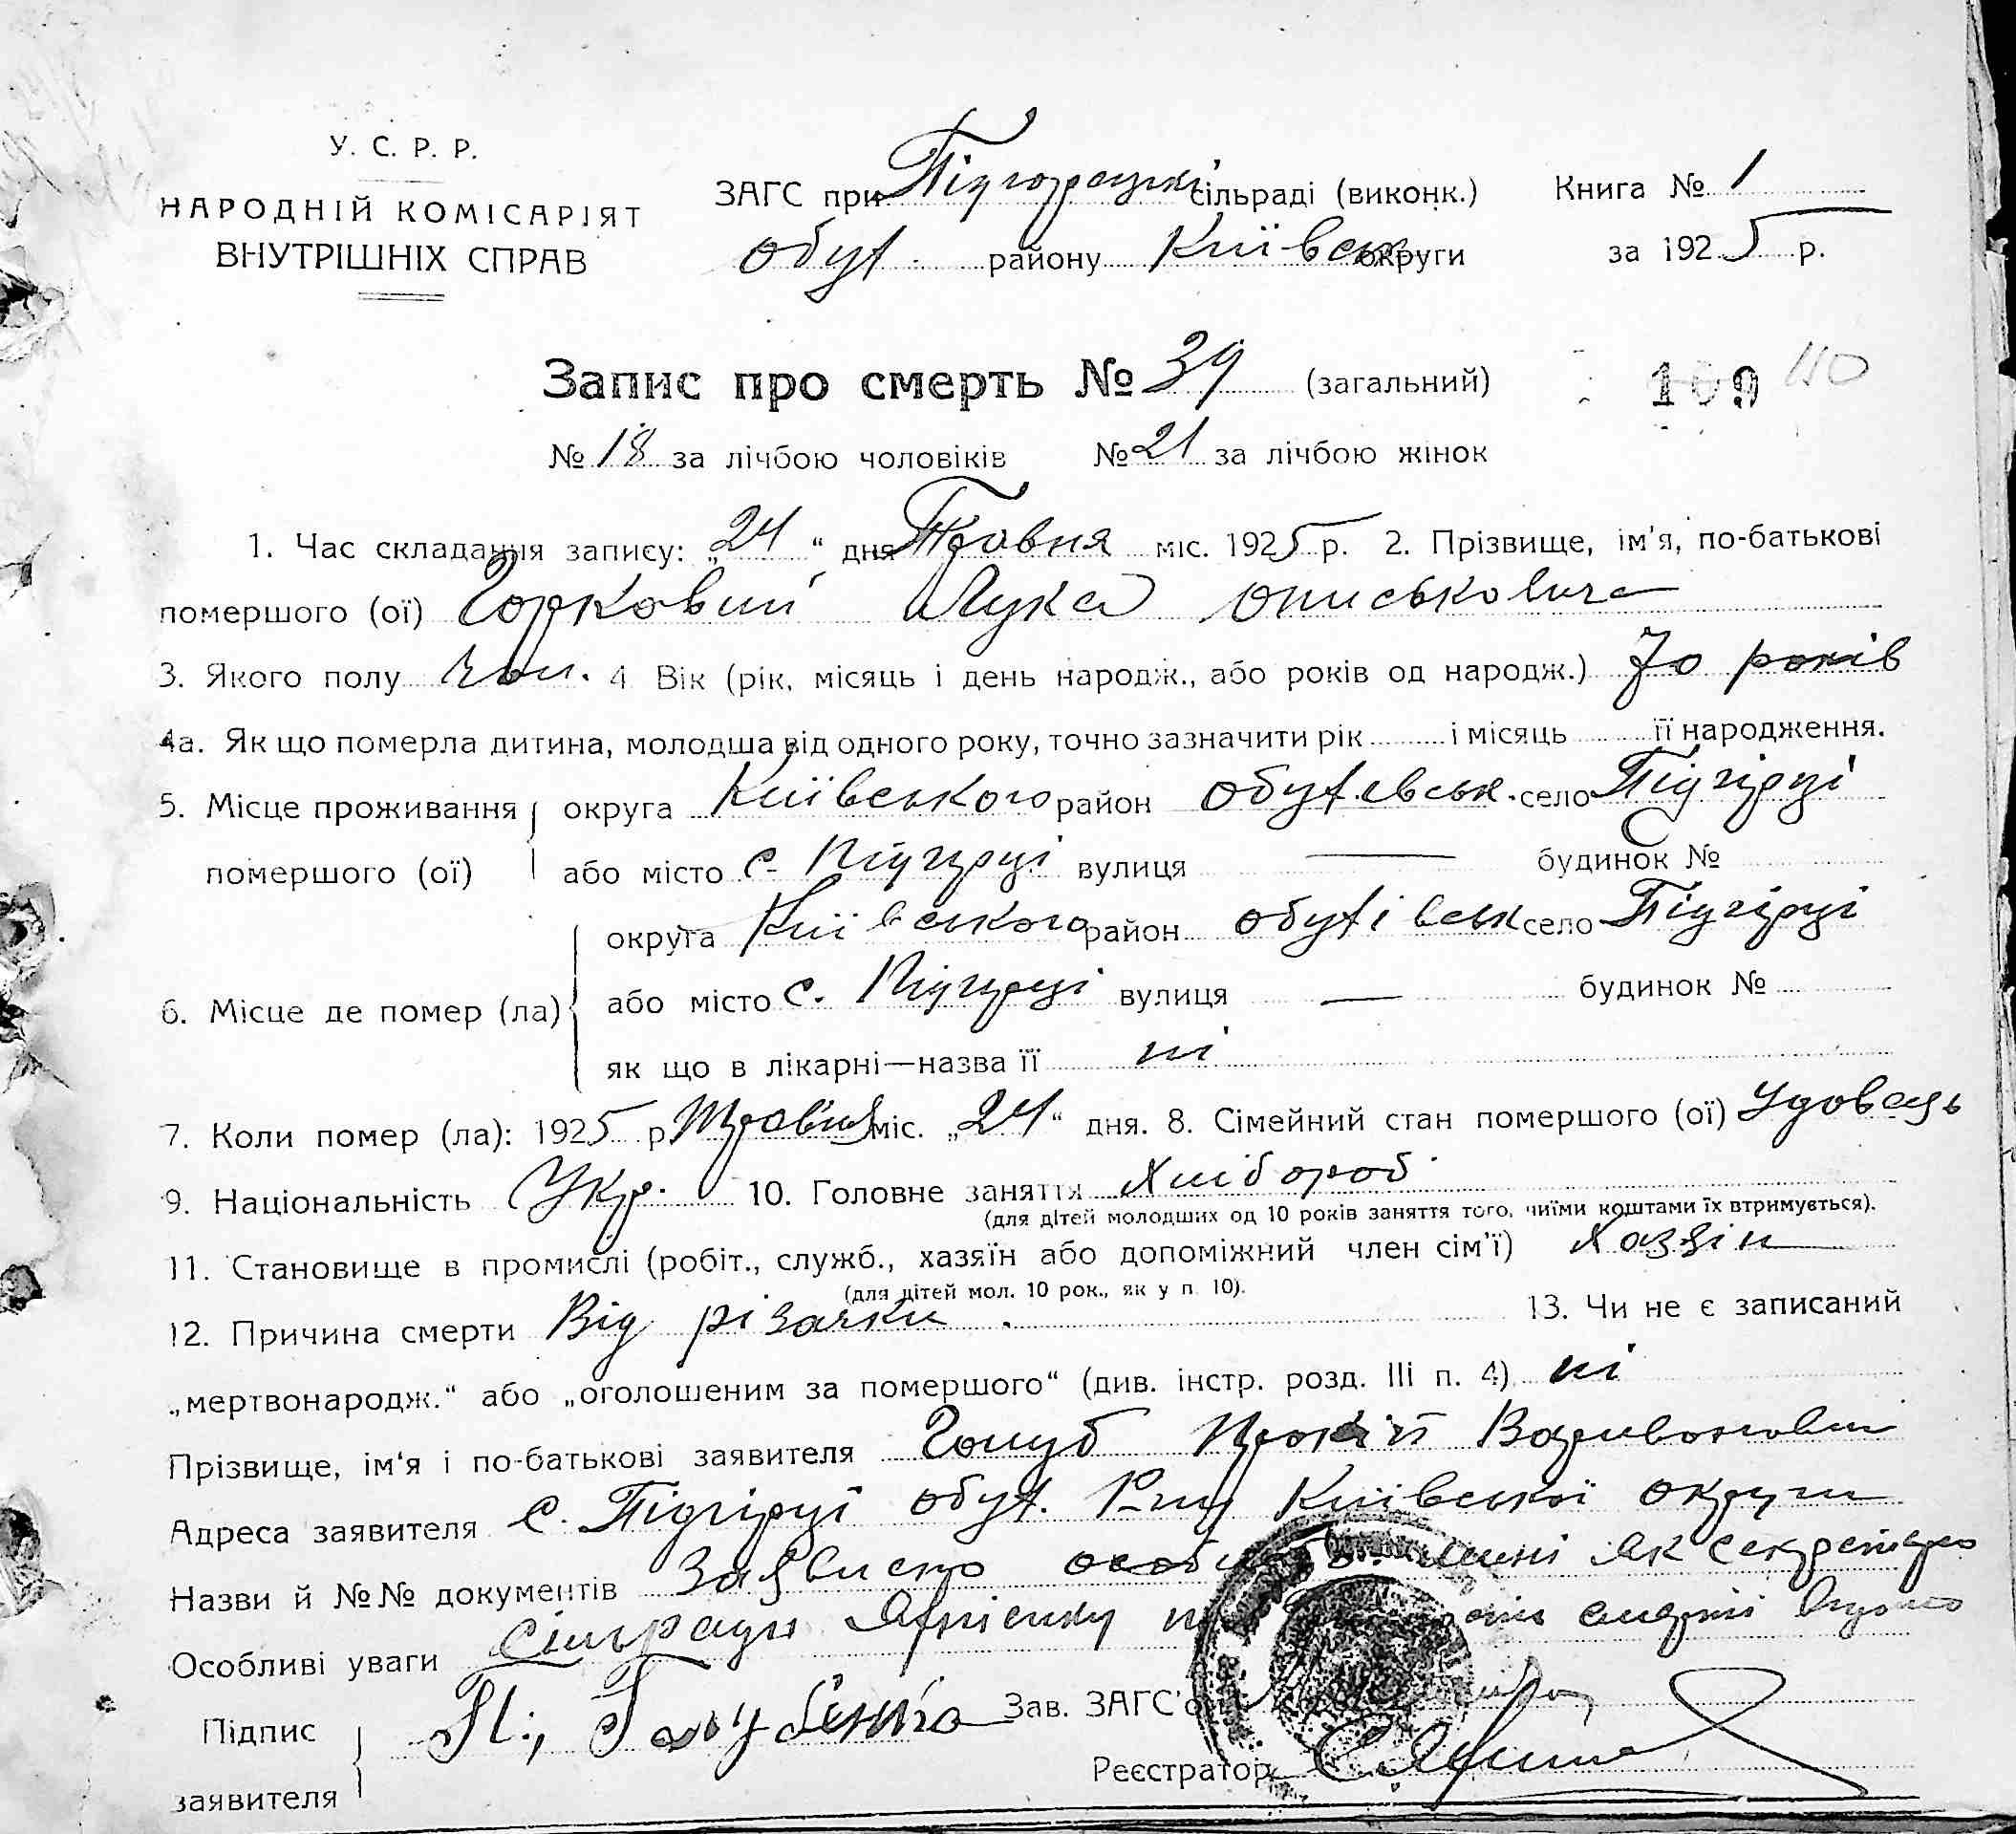 У. С. Р. Р.
НАРОДНІЙ КОМІСАРІЯТ
ВНУТРІШНІХ СПРАВ
ЗАГС при Підгорецькі сільраді (виконк.) Книга № 1
обух. району Київськ округи за 1925 р.
Запис про смерть № 39 (загальний) 109 110
№ 18 за лічбою чоловіків № 21 за лічбою жінок
1. Час складання запису: „24“ дня Травня міс. 1925 р. 2. Прізвище, ім'я, по-батькові
помершого (ої) Горковий Лука Описькович
3. Якого полу чол. 4 Вік (рік, місяць і день народж., або років од народж.) 70 років
4а. Як що померла дитина, молодша від одного року, точно зазначити рік і місяць її народження.
5. Місце проживання округа Київського район обухівськ. село Підгірці
помершого (ої) або місто с. Підгірці вулиця — будинок №
округа Київського район обухівськ село Підгірці
6. Місце де помер (ла) або місто с. Підгірці вулиця — будинок №
як що в лікарні—назва її ні
7. Коли помер (ла): 1925 р. Травня міс. „24“ дня. 8. Сімейний стан помершого (ої) Удовець
9. Національність Укр. 10. Головне заняття Хлібороб
(для дітей молодших од 10 років заняття того, чиїми коштами їх втримується).
11. Становище в промислі (робіт., служб., хазяїн або допоміжний член сім'ї) Хазяїн
(для дітей мол. 10 рок., як у п. 10).
12. Причина смерти Від різачки. 13. Чи не є записаний
„мертвонародж.“ або „оголошеним за помершого“ (див. інстр. розд. III п. 4) ні
Прізвище, ім'я і по-батькові заявителя Голуб
Адреса заявителя с. Підгірці обух. Р-ну Київської округи
Назви й №№ документів Заявлено особисто мині як секретарю
Особливі уваги сільради смерті
Підпис
заявителя
Зав. ЗАГС'о
Реєстратор